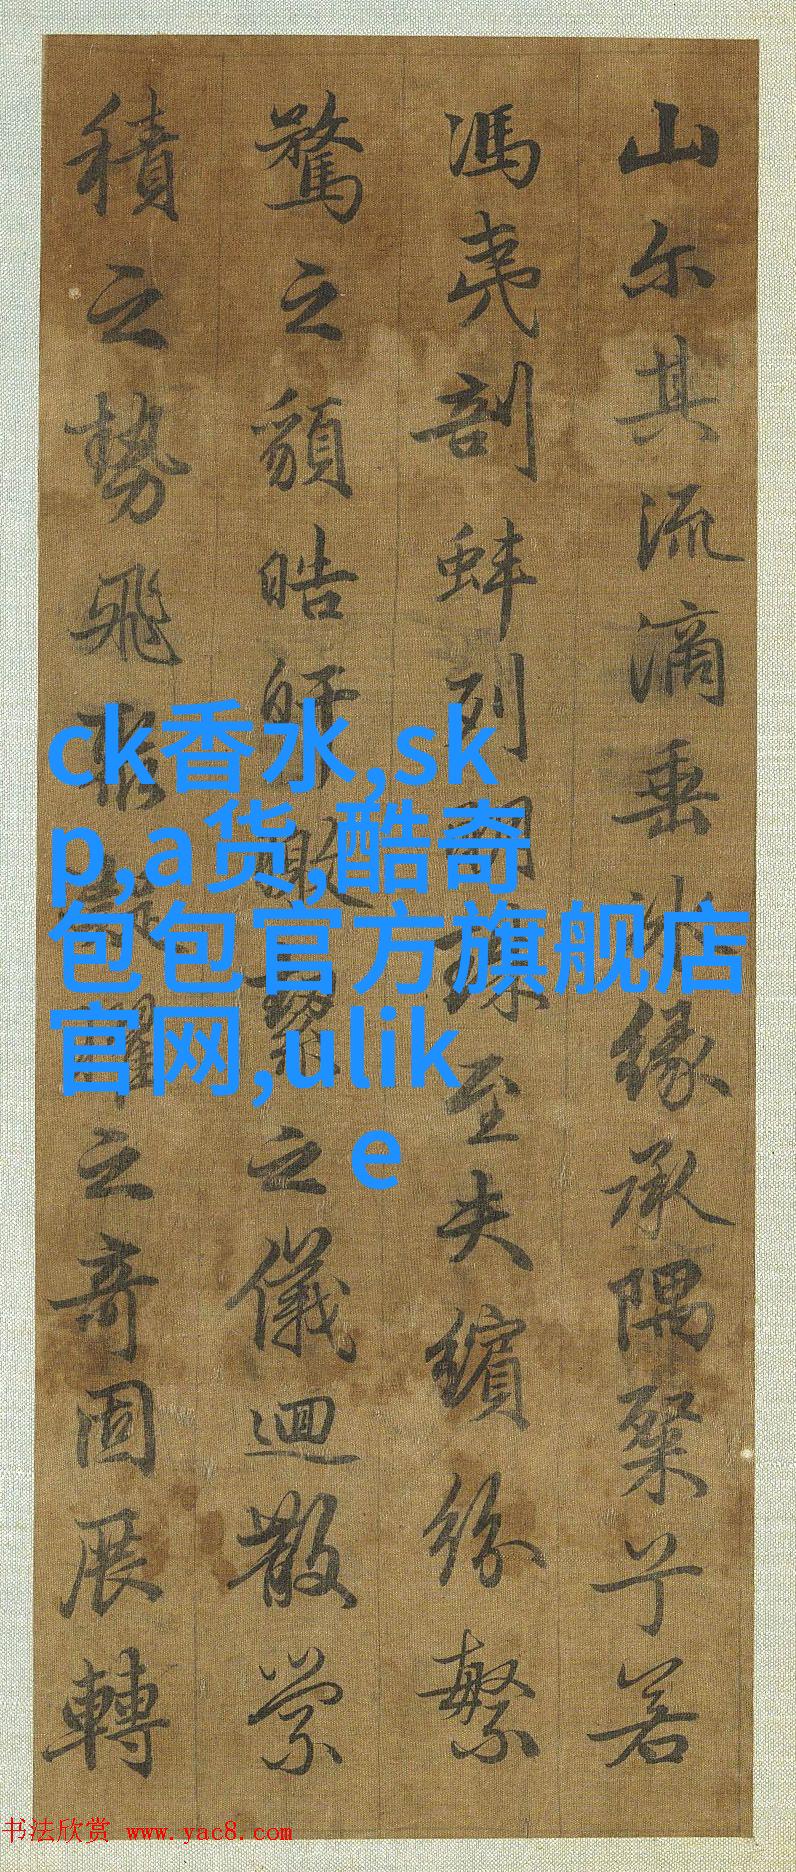 山尔其流滴垂冰缘承隅粲兮若
馮夷剖蚌列明珠至夫繽紛繁
騖之䫉皓皔皦絜之儀迴散縈
積之勢飛聚凝曜之奇固展轉
ck香水,sk
p,a货,酷奇
包包官方旗舰店
官网,ulik
e
书法欣赏 www.yac8.com